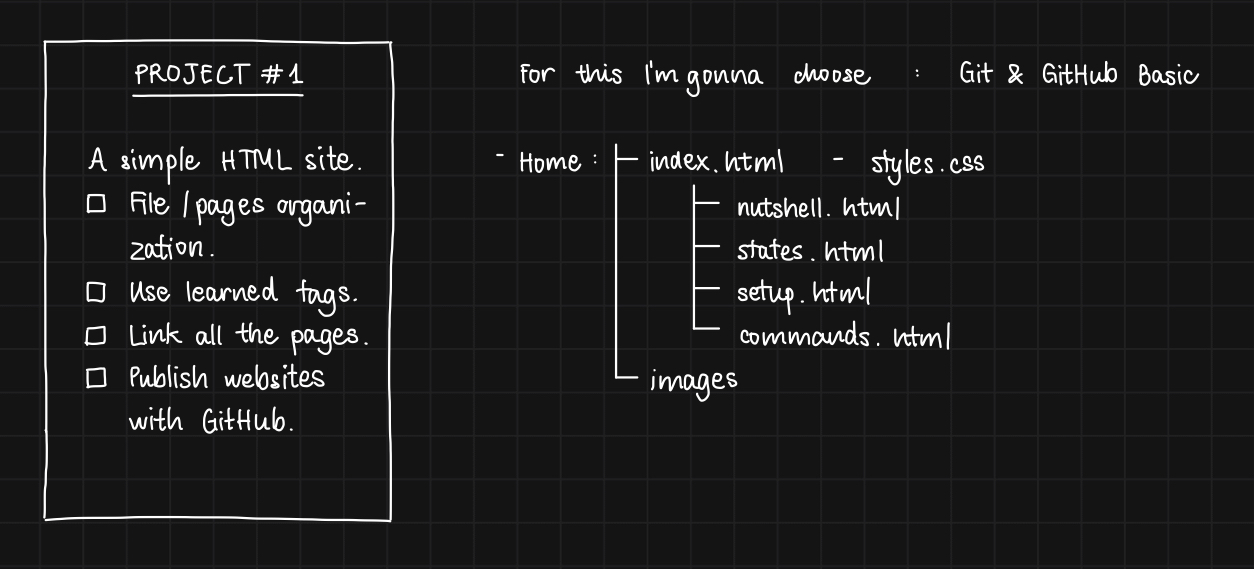 PROJECT #1
A simple HTML site.
File / pages organi-
zation.
Use learned tags.
Link all the pages.
Publish websites
with GitHub.
For this I'm gonna choose : Git & GitHub Basic
- Home : index.html - styles.css
nutshell.html
states.html
setup.html
commands.html
images